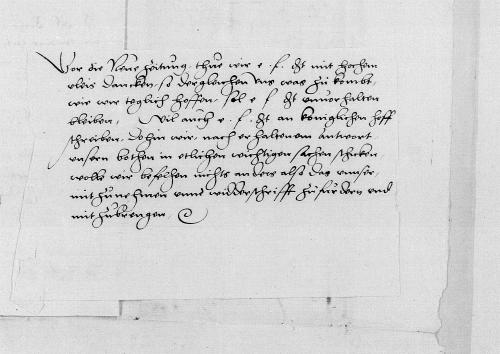 Vor die Neue zeitung, thue wir e. f. gt mit hochem
vleis dancken, so dergleichen uns was zu kombt,
wie wir teglich hoffen, sol e f gt unuorhalten
bleiben, Wil auch e. f. gt an koniglichen hoff
schreiben, dohin wir, nach erhaltenem antwort
unsern bothen in etlichen wichtigen sachen schicken,
wolle wir befelhen nichts anders alss das unser,
mit zunehmen unnd widderschrifft zufurdern und
mit zubrengen,